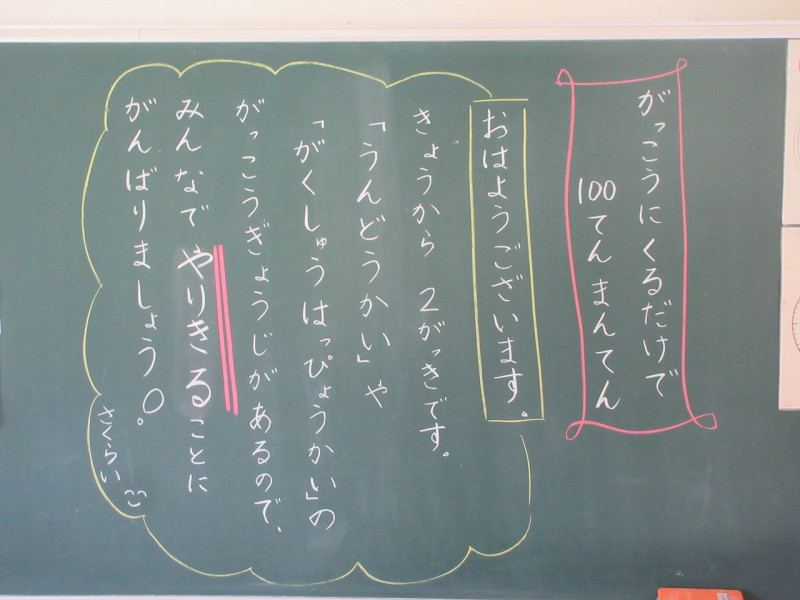 がっこうにくるだけで
100てんまんてん
おはようございます。
きょうから 2がっきです。
「うんどうかい」や
「がくしゅうはっぴょうかい」の
がっこうぎょうじがあるので、
みんなでやりきることに
がんばりましょう。
さくらい